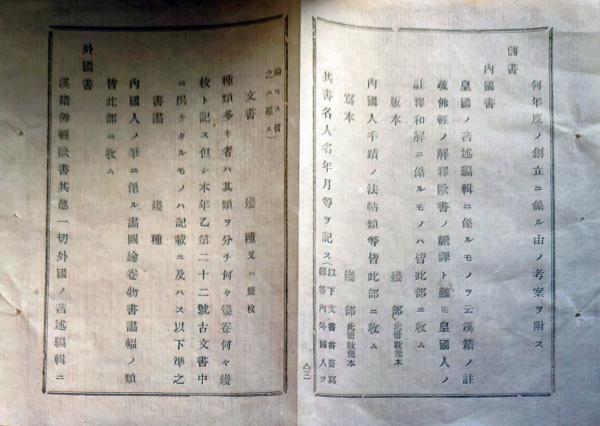 何年度ノ創立ニ係ル由ノ考案ヲ附ス
儲書
內國書
皇國ノ著述編輯ニ係ルモノヲ云漢籍ノ註
疏佛經ノ解釋歐書ノ飜譯ト雖モ皇國人ノ
註釋和解ニ係ルモノハ皆此部ニ收ム
版本 幾部 此册數幾本
內國人手蹟ノ法帖類等皆此部ニ收ム
寫本 幾部 此册數幾本
其書名人名年月等ヲ記ス(以下文書書畫寫
經等內外國人ヲ
論セス皆
之ニ準ス)
文書 幾種又ハ幾枚
種類多キ者ハ其類ヲ分チ何々幾卷何々幾
枚ト記ス但シ本年乙第二十二號古文書中
ニ揭ケタルモノハ記載ニ及ハス以下準之
書畵 幾種
內國人ノ筆ニ係ル畵圖繪卷物書畵幅ノ類
皆此部ニ收ム
外國書
漢籍佛經歐書其他一切外國ノ著述編輯ニ